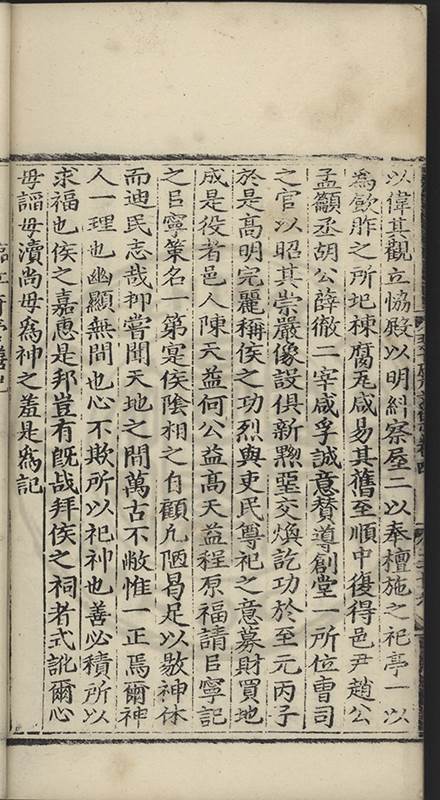 以偉其觀立協殿以明糾察屋二以奉檀施之祀亭一以
為飲胙之所圯棟腐瓦咸易其舊至順中復得邑尹趙公
孟籲丞胡公薛徹二宰咸孚誠意贊導創堂一所位曹司
之官以昭其崇嚴像設俱新黝堊交煥訖功於至元丙子
於是高明完麗稱侯之功烈與吏民尊祀之意募財買地
成是役者邑人陳天益何公益高天益程原福請臣寧記
之臣寧策名一第寔侯陰相之自顧凡陋曷足以敭神休
而迪民志哉抑嘗聞天地之間萬古不敝惟一正焉爾神
人一理也幽顯無間也心不欺所以祀神也善必積所以
求福也侯之嘉惠是邦豈有旣哉拜侯之祠者式訛爾心
毋謟毋瀆尚毋為神之羞是為記